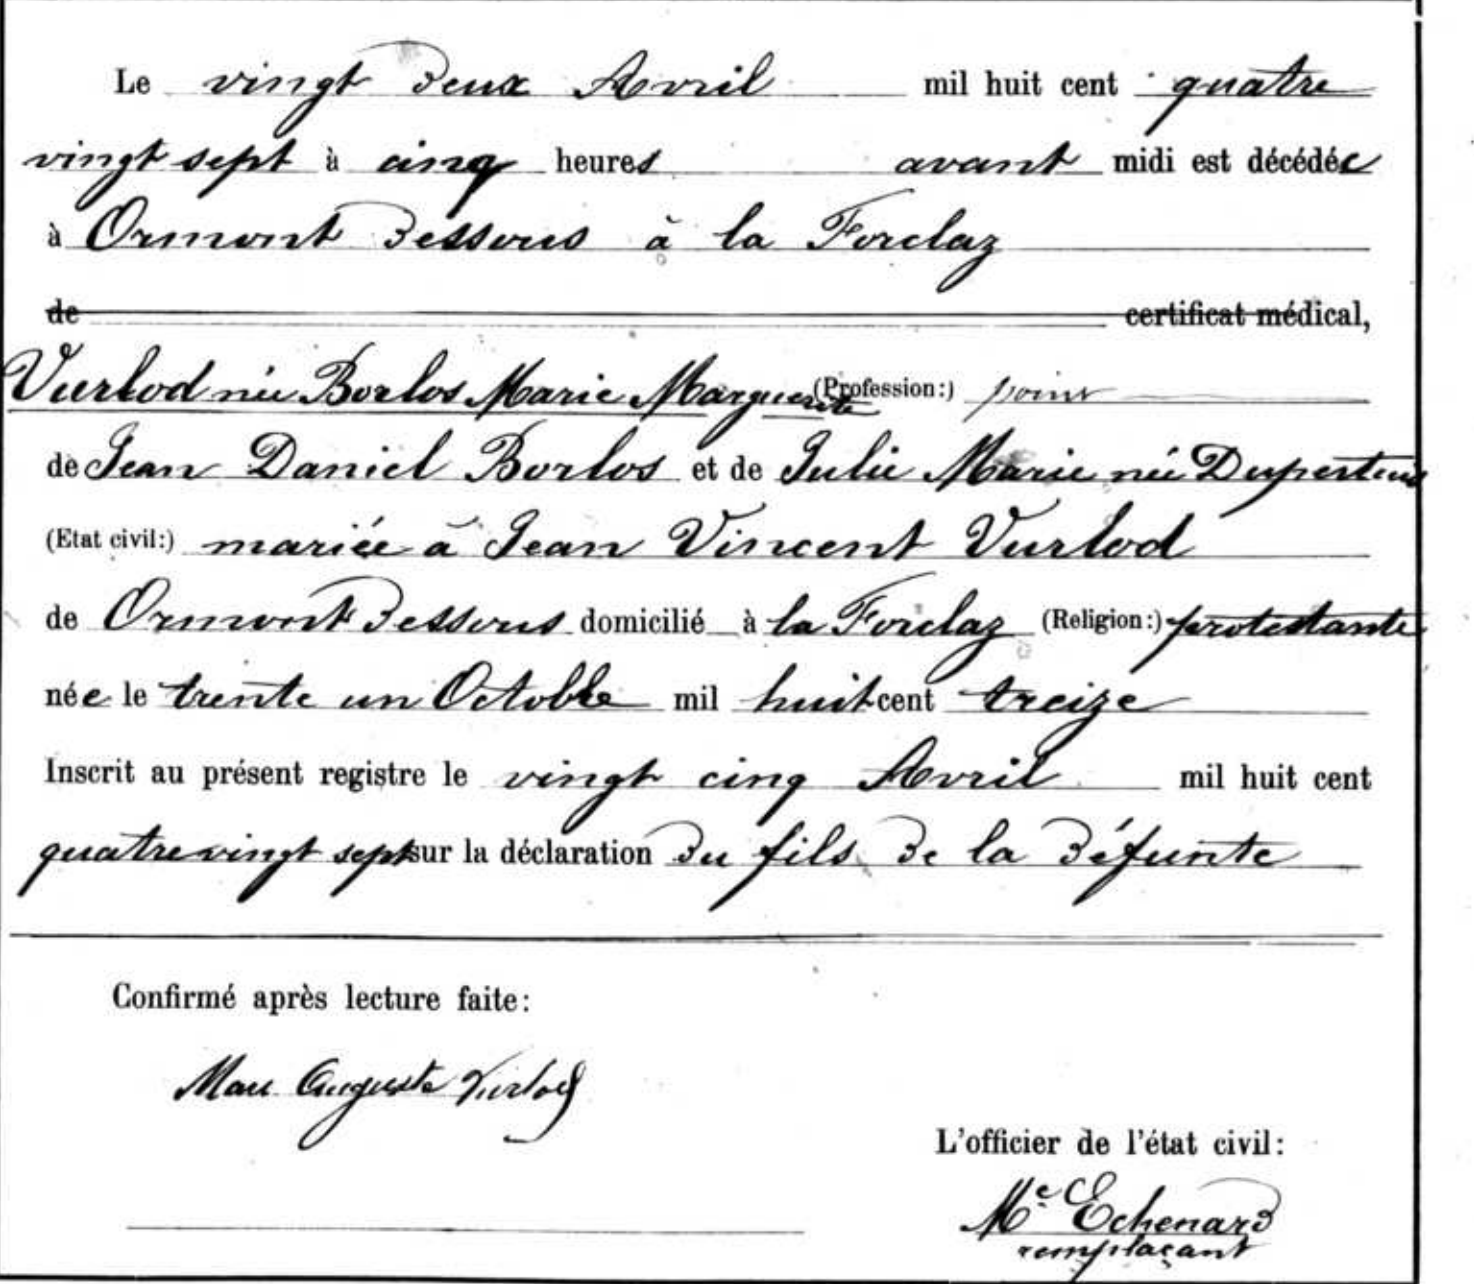 Le vingt deux Avril mil huit cent quatre
vingt sept à cinq heures avant midi est décédée
à Ormont dessous à la Forclaz
de certificat médical,
Vurlod née Borlos Marie Marguerite (Profession:) point
de Jean Daniel Borlos et de Julie Marie née Dupertuis
(Etat civil:) mariée à Jean Vincent Vurlod
de Ormont dessous domicilié à la Forclaz (Religion:) protestante
née le trente un Octobre mil huit cent treize
Inscrit au présent registre le vingt cinq Avril mil huit cent
quatre vingt sept sur la déclaration du fils de la défunte
Confirmé après lecture faite:
Marc Auguste Vurlod
L'officier de l'état civil:
Mce Echenard
remplaçant